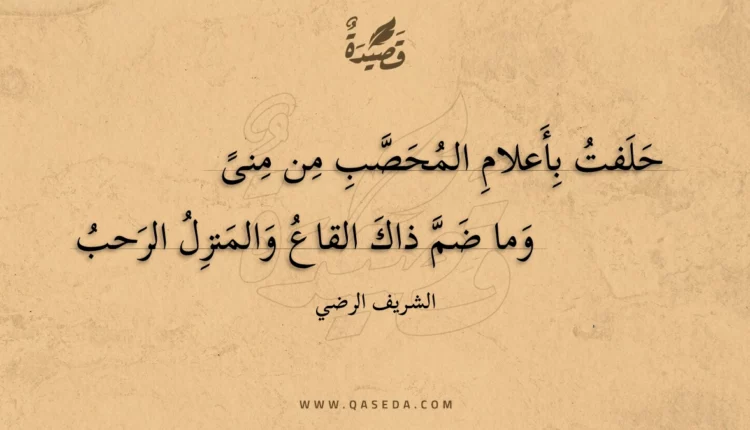 قَصِيدَةٌ
حَلَفتُ بِأَعلامِ المُحَصَّبِ مِن مِنىً
وَما ضَمَّ ذاكَ القاعُ وَالمَنزِلُ الرَحبُ
الشريف الرضي
WWW.QASEDA.COM